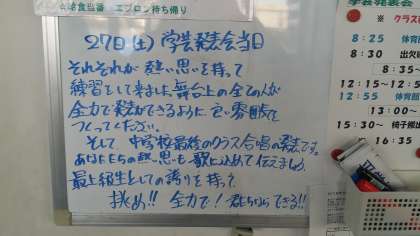 ☆給食当番 エプロン持ち帰り
27日(土) 学芸発表会当日
それぞれが熱い思いを持って
練習をして来ました。舞台上の全ての人が
全力で発表ができるように、良い雰囲気を
つくってください。
そして、中学校最後のクラス合唱の発表です。
あなたたちの熱い思いを歌に込めて伝えましょう。
最上級生としての誇りを持って、
挑め!! 全力で! 君たちならできる!!
学芸発表会
※ クラス
8:25 体育館
8:30 出欠
8:35~
12:15~12:
12:55 体育館
13:00~
15:30~ 椅子搬出
16:35